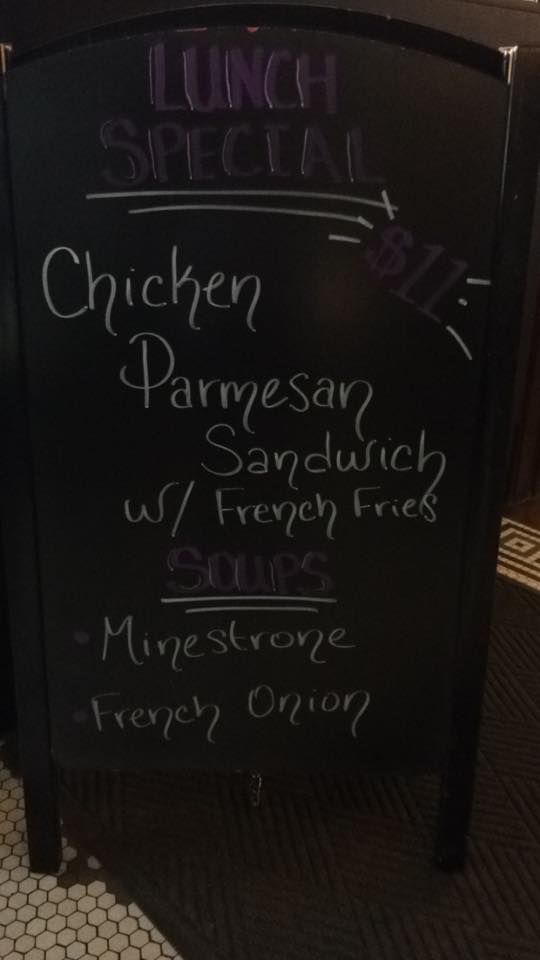 LUNCH
SPECIAL
$11
Chicken
Parmesan
Sandwich
w/ French Fries
SOUPS
• Minestrone
• French Onion